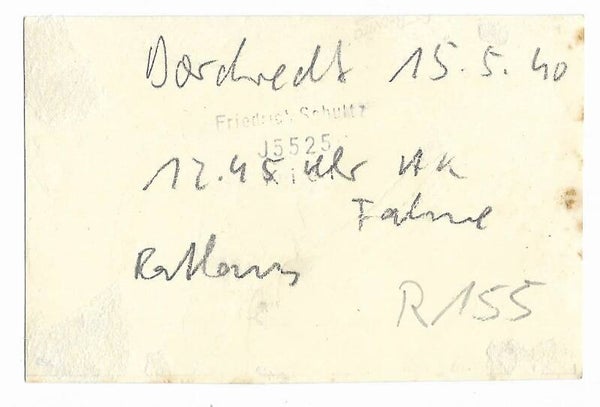 Dordrecht 15.5.40
Friedrich Schultz
J5525
Kiel
12.45 Uhr HK
Fahne
Rathaus
R 155